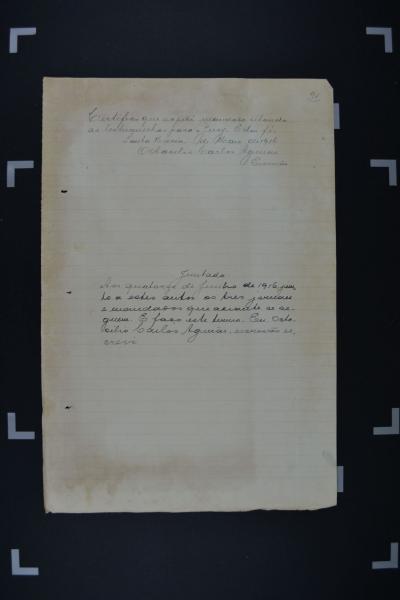 21
Certifico que expedi mandado citando
as testemunhas para o jury. E dou fé.
Santa Maria, de 1916
Octacilio Carlos Aguiar
Escrivão
Juntada
Aos quatorze de junho de 1916, jun-
to a estes autos os tres
e mandados que adiante se se-
guem. E faço este termo. Eu, Octa-
cilio Carlos Aguiar, escrivão es-
crevi